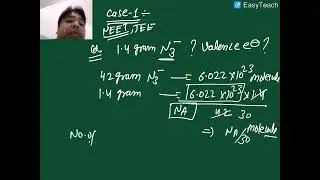 EasyTeach
Case-1 :-
NEET, JEE
Q. 1.4 gram N3⁻ ? Valence e⊖ ?
42 gram N3⁻ —— = 6.022 x 10^23 molecule
1.4 gram —— = 6.022 x 10^23 x 1.4
NA 42 30
⇒ NA/30 molecule
No. of